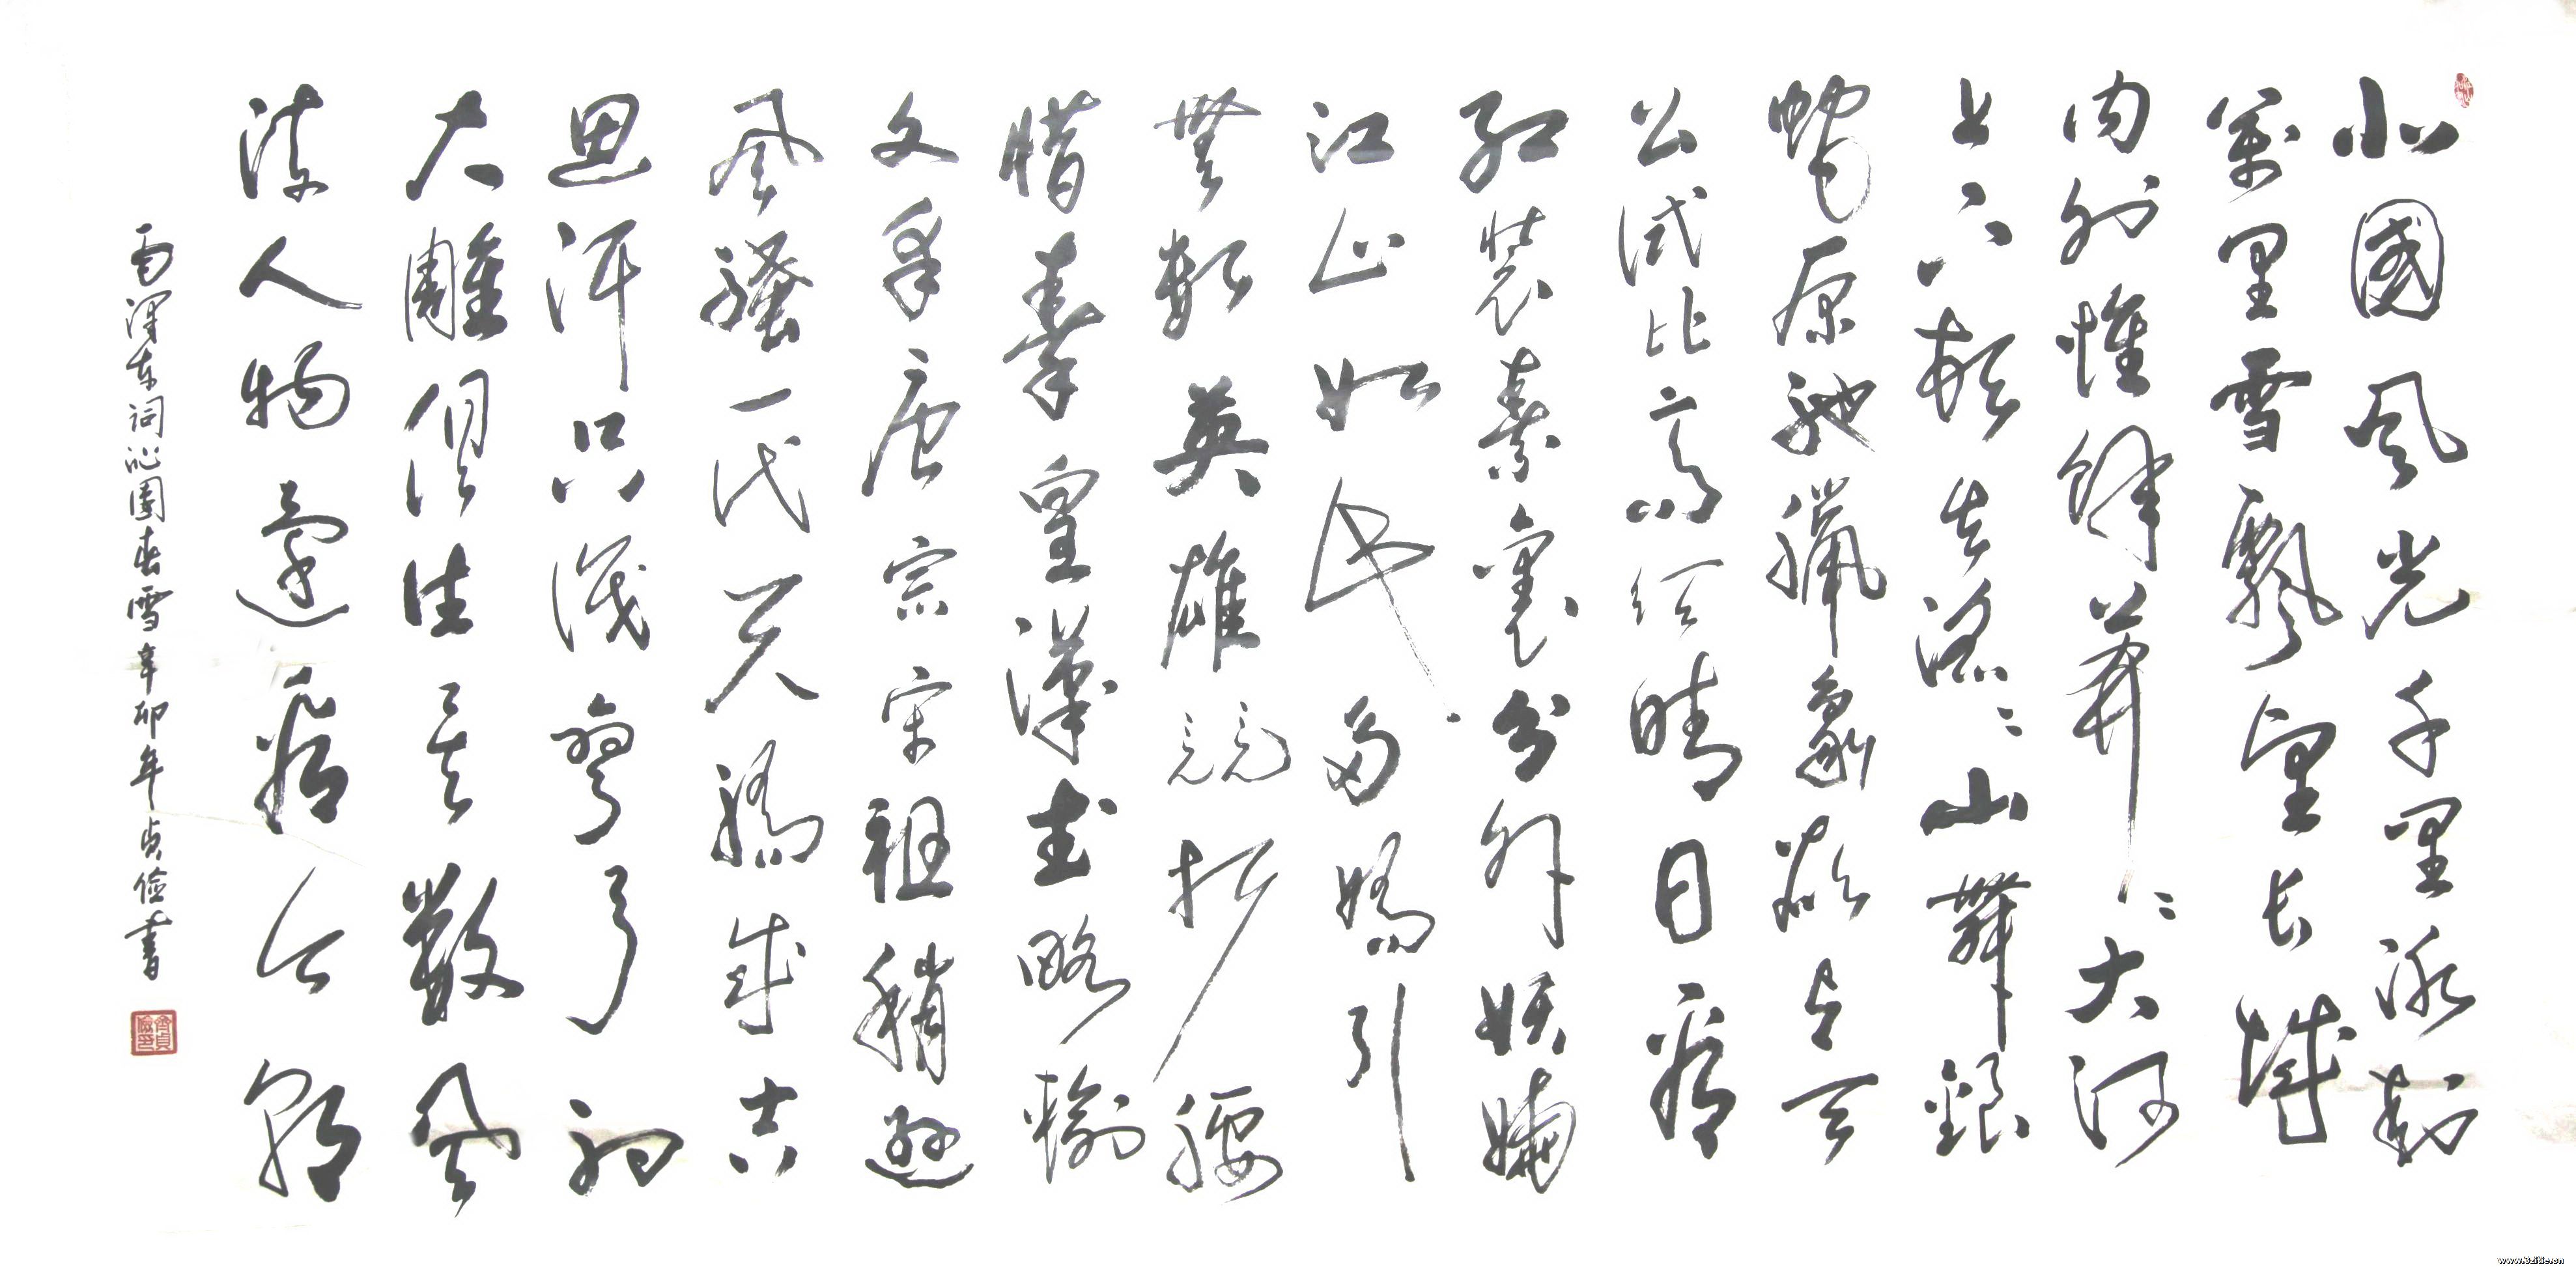 北國风光千里冰封
萬里雪飄望长城
内外惟餘莽〻大河
上下頓失滔〻山舞銀
蛇原馳臘象欲与天
公试比高须晴日看
红装素裹分外妖娆
江山如此多嬌引
無数英雄競折腰
惜秦皇漢武略輸
文采唐宗宋祖稍逊
风骚一代天骄成吉
思汗只识彎弓射
大雕俱往矣數风
流人物還看今朝
毛澤东詞沁園春雪辛卯年贞儉書